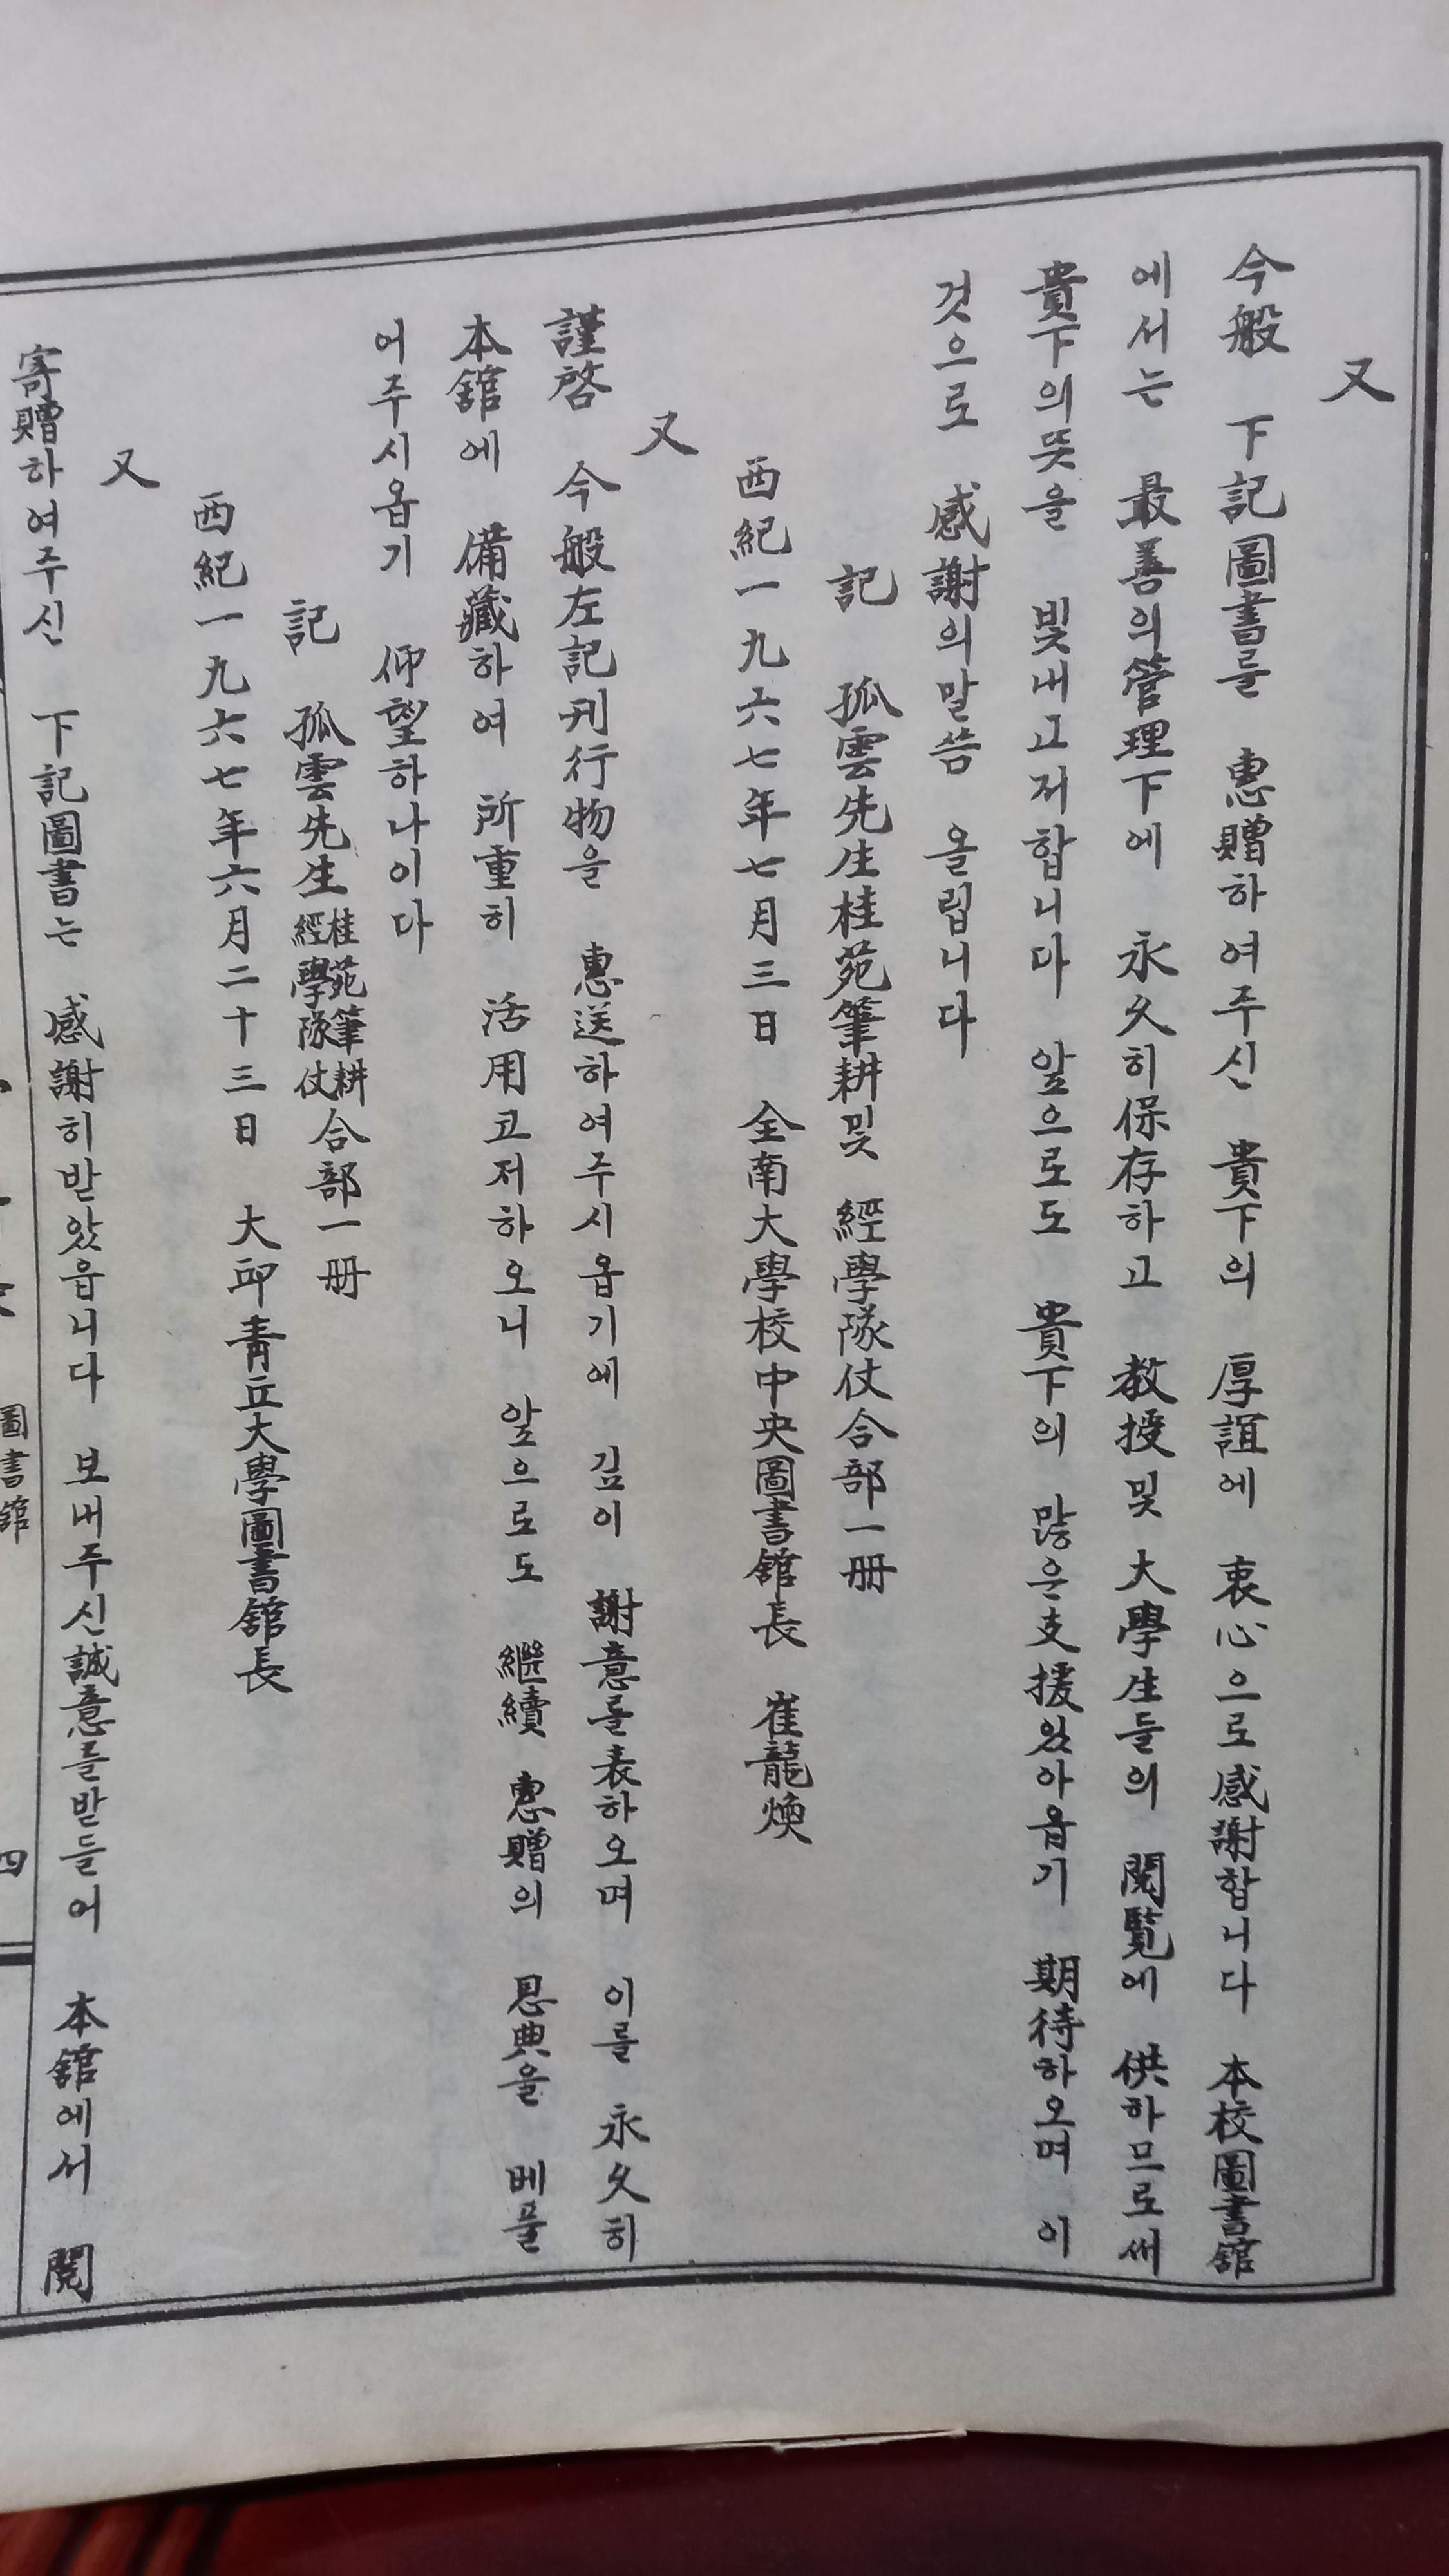 又
今般 下記圖書를 惠贈하여주신 貴下의 厚誼에 衷心으로感謝합니다 本校圖書舘
에서는 最善의管理下에 永久히保存하고 敎授및 大學生들의 閱覽에 供하므로써
貴下의뜻을 빛내고저합니다 앞으로도 貴下의 많은支援있아옵기 期待하오며 이
것으로 感謝의말씀 올립니다
記 孤雲先生桂苑筆耕및 經學隊仗合部一冊
西紀一九六七年七月三日 全南大學校中央圖書舘長 崔龍煥
又
謹啓 今般左記刊行物을 惠送하여주시옵기에 깊이 謝意를表하오며 이를 永久히
本舘에 備藏하여 所重히 活用코저하오니 앞으로도 繼續 惠贈의 恩典을 베풀
어주시옵기 仰望하나이다
記 孤雲先生桂苑筆耕經學隊仗合部一冊
西紀一九六七年六月二十三日 大邱靑丘大學圖書舘長
又
寄贈하여주신 下記圖書는 感謝히받았읍니다 보내주신誠意를받들어 本舘에서 閱
圖書舘
四